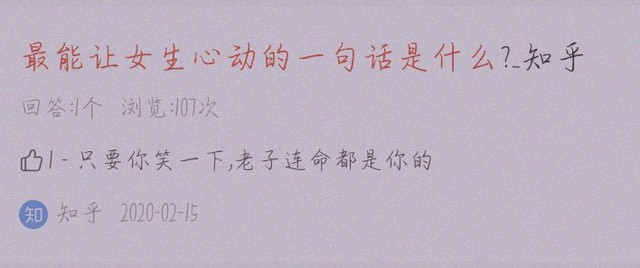 最能让女生心动的一句话是什么?_知乎
回答:1个 浏览:107次
1 - 只要你笑一下,老子连命都是你的
知 知乎 2020-02-15